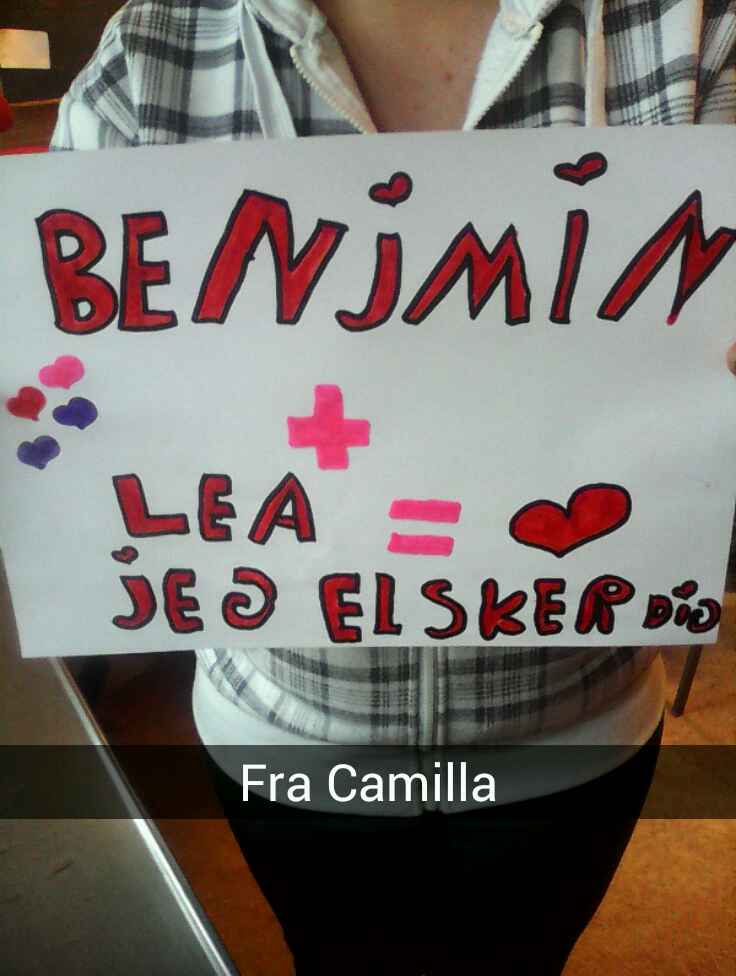 BENjMiN
+
LEA = ♥
jEG ELSKER DiG
Fra Camilla